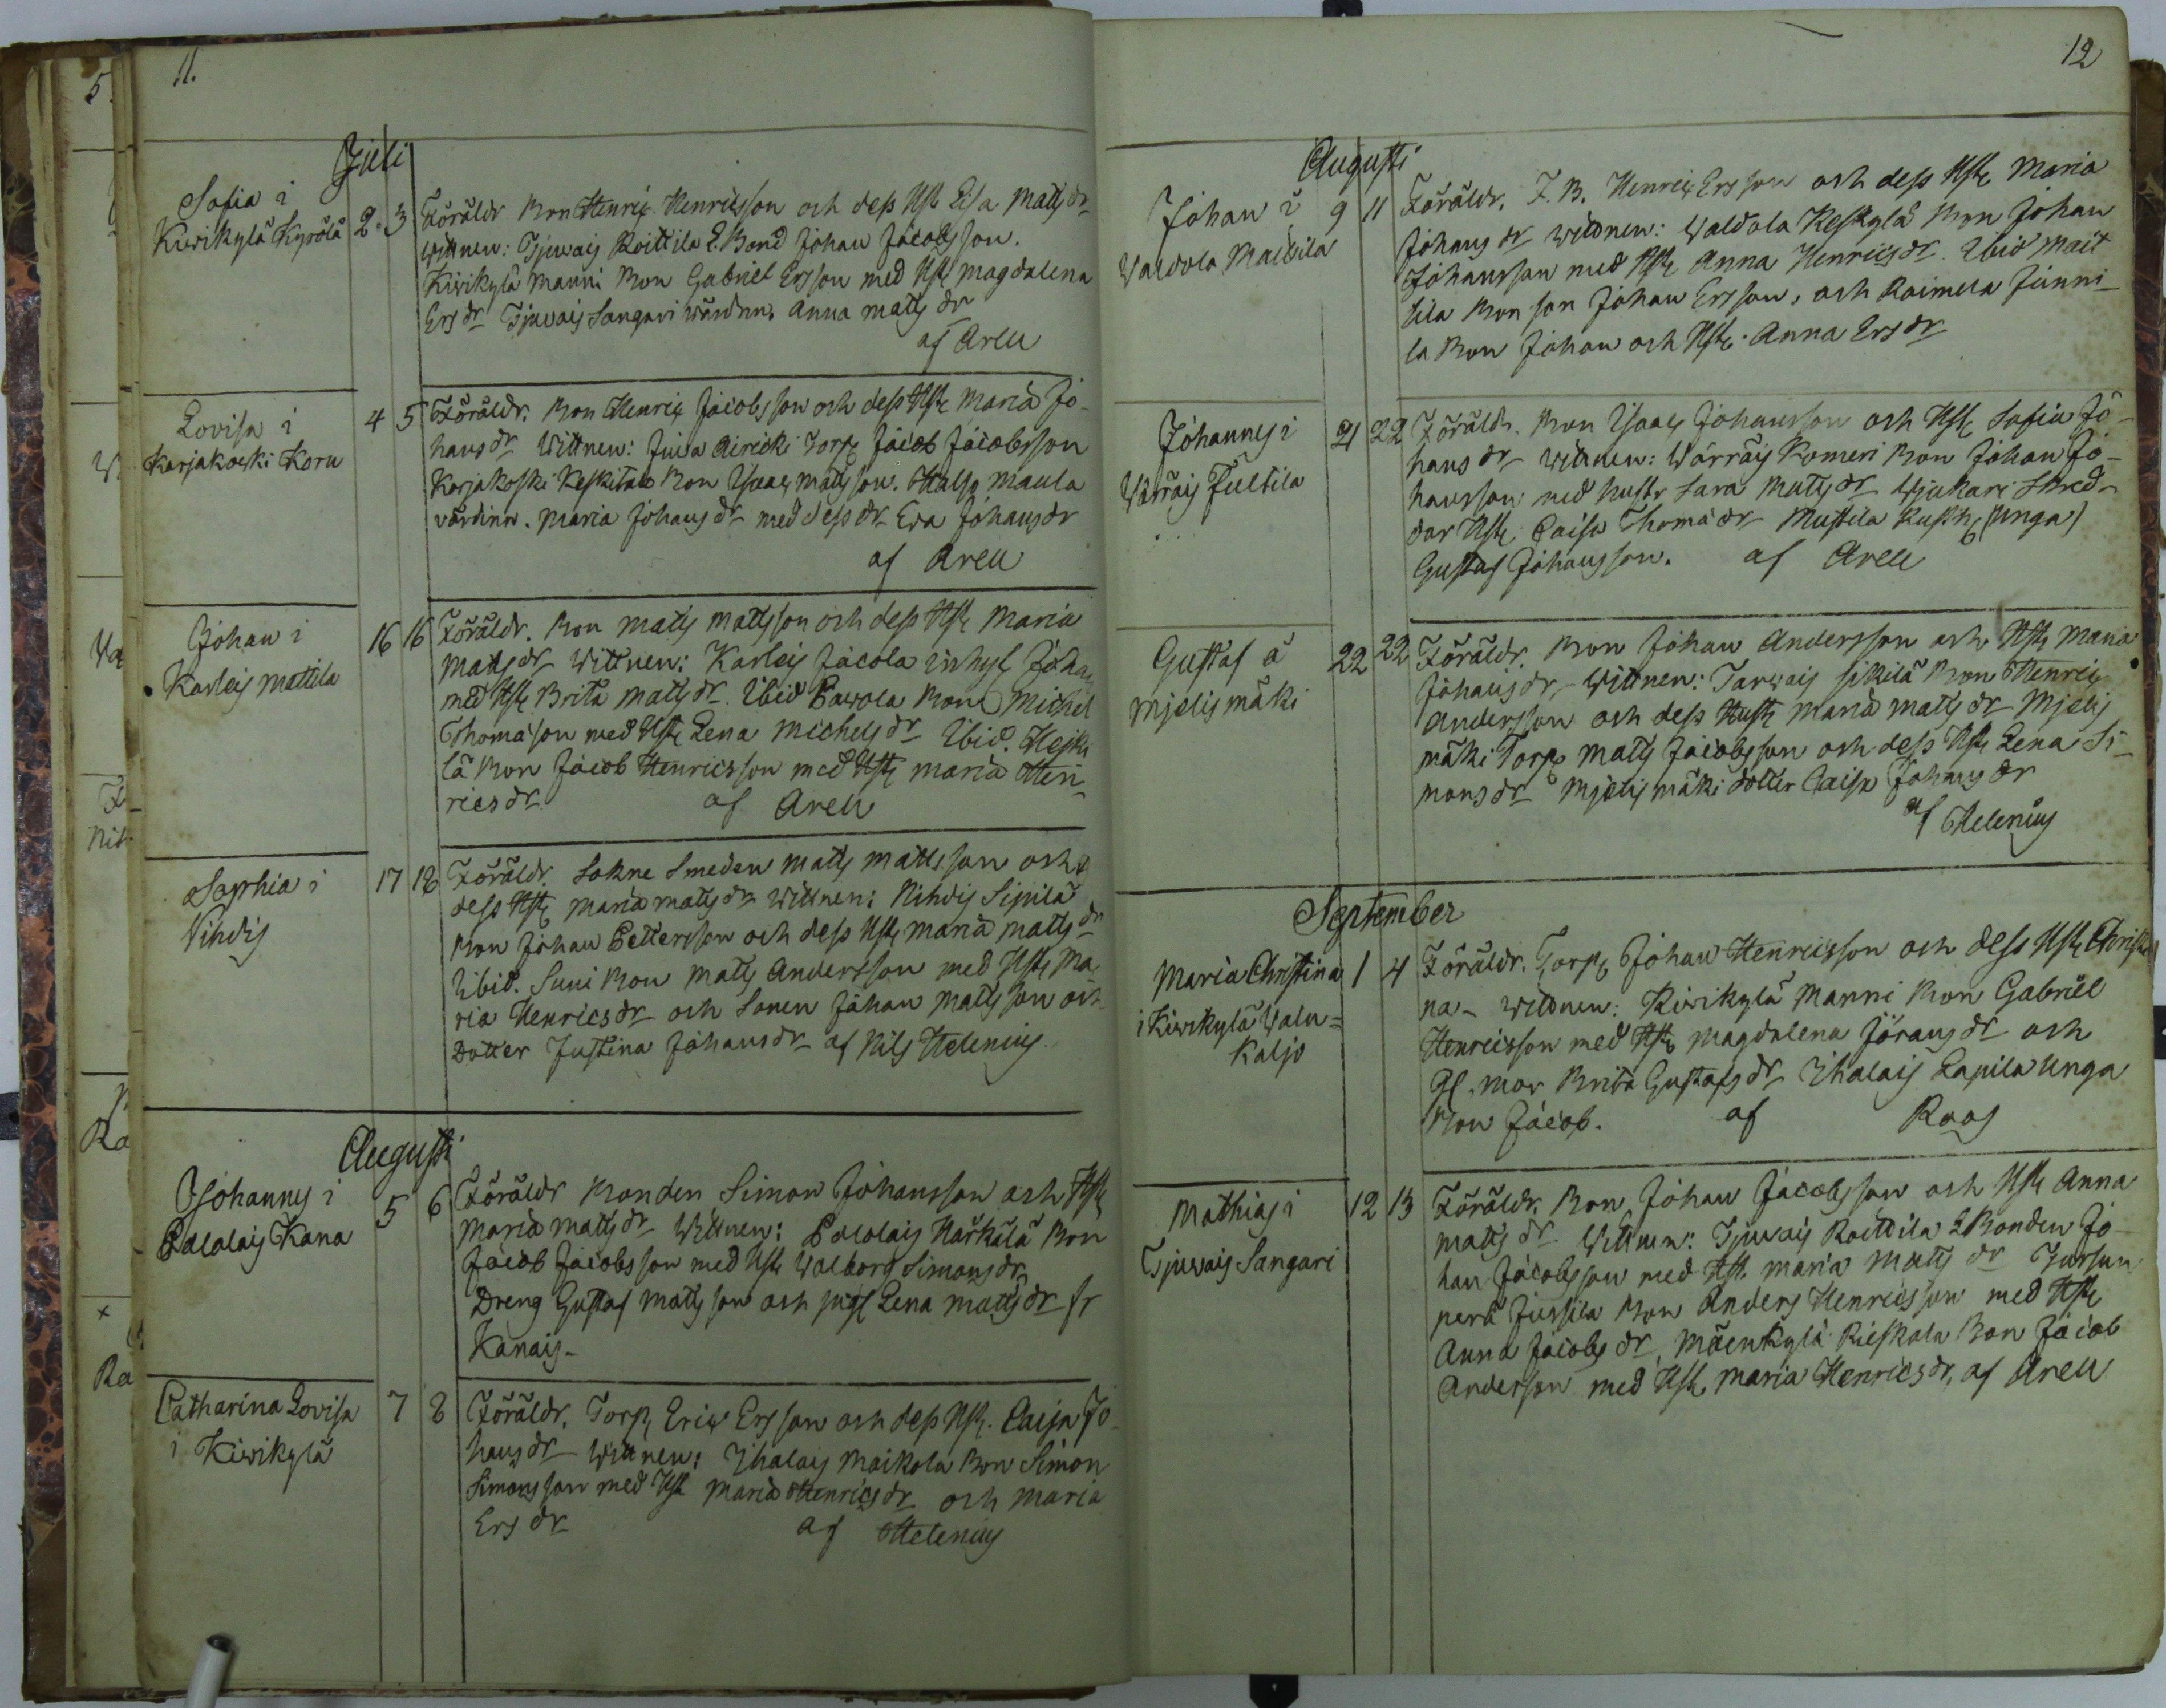 11.
Juli
Sofia i
Kiwikylä Kyrölä
2. 3
Föräldr Bon Henric Henricsson och dess Hst Lisa Matts dr
wittnen: Tjuwais Roittila E. Bond Johan Jacobsson.
Kiwikylä Manni Bon Gabriel Ersson med Hst Magdalena
Ers dr Tjuvais Sangari wärdinn. Anna Matts dr
af Arell
Lovisa i
Karjakoski Koru
4 5
Föräldr. Bon Henric Jacobsson och dess Hst Maria Jo-
hans dr Wittnen: Juva Airicki Torp Jacob Jacobsson
Karjakoski Keskitalo Bon Isaac Mattsson. Haljo Maula
värdinn. Maria Johans dr med dess dr Eva Johans dr
af Arell
Johan i
Karleis Mattila
16 16
Föräldr. Bon Matts Mattsson och dess Hst Maria
Matts dr Wittnen: Karleis Jacola inhys Johan
med Hst Brita Matts dr. Ibid Pawola Bon Michel
Thomasson med Hst Lena Michels dr Ibid. Heiki
lä Bon Jacob Henricsson med Hst Maria Hen-
rics dr.
af Arell
Sophia i
Nihdis
17 18
Föräldr. Sokne Smeden Matts Mattsson och
dess Hst Maria Matts dr Wittnen: Nihdis Sipilä
Bon Johan Pettersson och dess Hst Maria Matts dr
Ibid. Suni Bon Matts Andersson med Hst Ma
ria Henrics dr och Sonen Johan Mattsson och
Dotter Justina Johans dr af Nils Helenius.
Augusti
Johannes i
Palalais Kana
5 6
Föräldr Bonden Simon Johansson och Hst
Maria Matts dr Wittnen: Palalais Härkälä Bon
Jacob Jacobsson med Hst Walborg Simons dr
Dreng Gustaf Mattsson och pigl Lena Matts dr fr
Kanais-
Catharina Lovisa
i Kiwikylä
7 8
Föräldr. Torp. Eric Ersson och dess Hst. Caisa Jo-
hans dr Wittnen: Ihalais Maikola Bon Simon
Simonsson med Hst Maria Henrics dr och Maria
Ers dr
af Helenius
12
Augusti
Johan i
Waldola Maitila
9 11
Föräldr. F. B. Henric Ersson och dess Hst Maria
Johans dr wittnen: Waldola Keskylä Bon Johan
Johansson med Hst Anna Henrics dr. Ibid Mait
tila Bon son Johan Ersson, och Raimela Junni-
la Bon Johan och Hst. Anna Ers dr
Johannes i
Wärräis Tultila
21 22
Föräldr. Bon Isaac Johansson och Hst Sofia Jo-
hans dr wittnen: Wärräis Komeri Bon Johan Jo-
hansson med hustr Sara Matts dr Wjukari Skred-
dar Hst Caisa Thoma dr Mustila Rusth (Unga)
Gustaf Johansson.
af Arell
Gustaf å
Mjelismäki
22 22
Föräldr. Bon Johan Andersson och Hst Maria
Johans dr, Wittnen: Tarwais Sikilä Bon Henric
Andersson och dess Hust Maria Matts dr Mjelis
mäki Torp Matts Jacobsson och dess Hst Lena Si-
mons dr Mjelismäki dotter Caisa Johans dr
af Helenius
September
Maria Christina
i Kiwikylä Walu-
kaljo
1 4
Föräldr. Torp. Johan Henricsson och dess Hst Christi
na- wittnen: Kiwikylä Manni Bon Gabriel
Henricsson med Hst Magdalena Jörans dr och
Gl. mor Brita Gustafs dr Ihalais Lapila Unga
Bon Jacob.
af Roos
Mathias i
Tjuwais Sangari
12 13
Föräldr. Bon Johan Jacobsson och Hst Anna
Matts dr. Wittnen: Tjuvais Roittila E Bonden Jo-
han Jacobsson med Hst. Maria Matts dr Tursun
perä Jussila Bon Anders Henricsson med Hst
Anna Jacobs dr, Mäenkylä Rieskala Bon Jacob
Andersson med Hst. Maria Henrics dr, af Arell